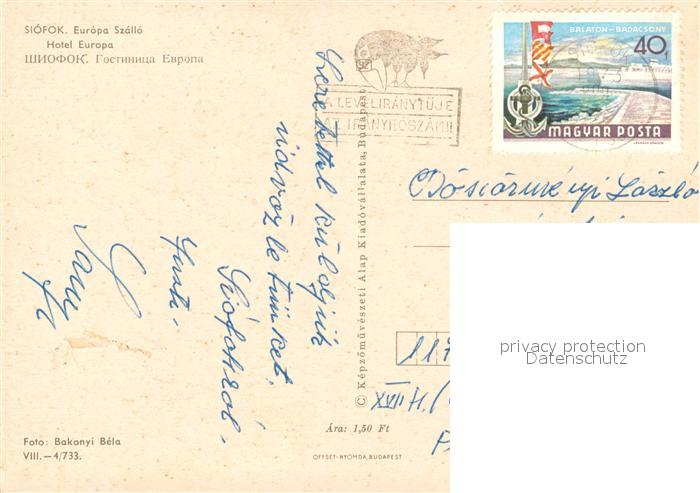 SIÓFOK. Európa Szálló
Hotel Europa
ШИОФОК. Гостиница Европа
Szeretettel küldjük
üdvözletünket.
Siófokról.
Foto: Bakonyi Béla
VIII.—4/733.
© Képzőművészeti Alap Kiadóvállalata, Budapest
Ára: 1,50 Ft
OFFSET-NYOMDA, BUDAPEST
A LEVÉL IRÁNYTŰJE
AZ IRÁNYÍTÓSZÁM!
BALATON–BADACSONY
40f
MAGYAR POSTA
László
117
XVII. H./
privacy protection
Datenschutz